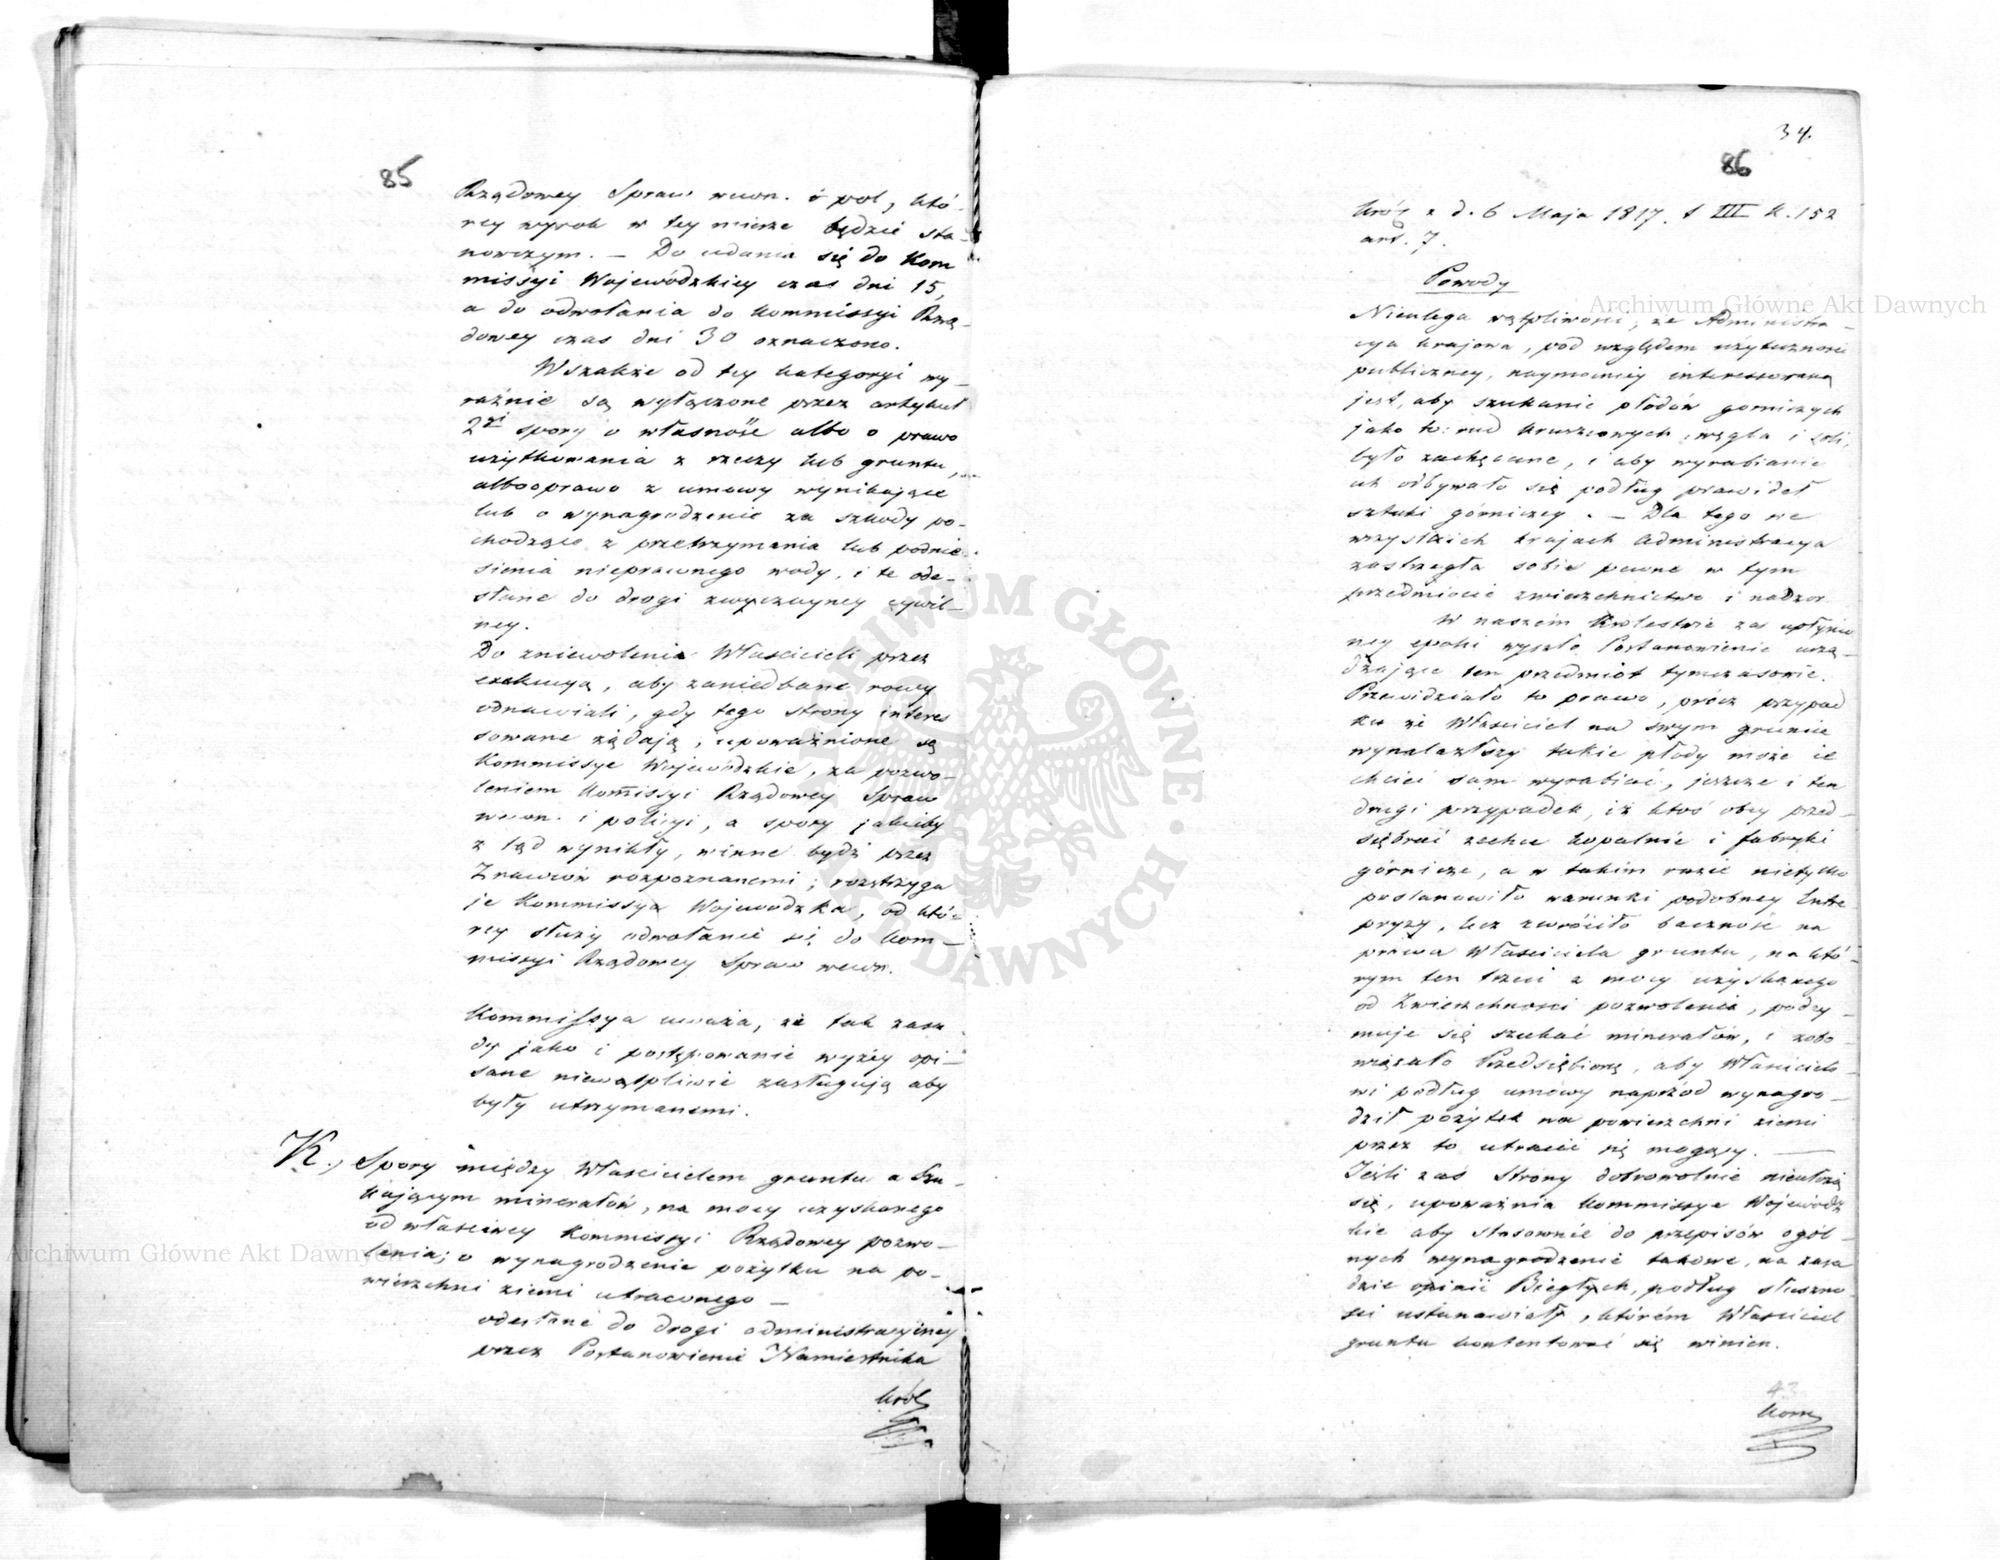 85
Rządowey Spraw wewn. i pol, któ-
rey wyrok w tey mierze będzie sta-
nowczym. — Do udania się do Kom
missyi Wojewódzkiey czas dni 15,
a do odwołania do Kommissyi Rzą-
dowey czas dni 30 oznaczono.
Wszakże od tey kategoryi wy-
raźnie są wyłączone przez artykuł
2gi spory o własność albo o prawo
użytkowania z rzeczy lub gruntu,
albo o prawo z umowy wynikające
lub o wynagrodzenie za szkody po-
chodzące z przetrzymania lub podnie-
sienia nieprawnego wody, i te ode-
słane do drogi zwyczayney cywil-
ney.
Do zniewolenia Właścicieli przez
exekucyą, aby zaniedbane rowy
odnawiali, gdy tego strony interes
sowane żądają, upoważnione są
Kommissye Wojewódzkie, za pozwo-
leniem Kommissyi Rządowey Spraw
wewn. i policyi, a spory jakieby
z tąd wynikły, winne bydź przez
Znawców rozpoznanemi; rozstrzyga
je Kommissya Wojewódzka, od któ-
rey służy odwołanie się do Kom-
missyi Rządowey Spraw wewn.
Kommissya uważa, że tak zasa
dy jako i postępowanie wyżey opi-
sane niewątpliwie zasługują aby
były utrzymanemi.
K., Spory między Właścicielem gruntu a Szu-
kającym minerałów, na mocy uzyskanego
od właściwey Kommissyi Rządowey pozwo-
lenia; o wynagrodzenie pożytku na po-
wierzchni ziemi utraconego —
odesłane do drogi administracyiney
przez Postanowienie Namiestnika
Król
34.
86
Król z d. 6 Maja 1817. t III k. 152
art. 7.
Powody
Nieulega wątpliwości, że Administra-
cya krajowa, pod względem użyteczności
publiczney, naymocniey interessowaną
jest, aby szukanie płodów gorniczych
jako to: rud kruszcowych, węgla i soli,
było zachęcane, i aby wyrabianie
ich odbywało się podług prawideł
sztuki górniczey. — Dla tego we
wszystkich krajach Administracya
zastrzegła sobie pewne w tym
przedmiocie zwierzchnictwo i nadzor
W naszém Królestwie za upłynio
ney epoki wyszło Postanowienie urzą-
dzające ten przedmiot tymczasowie.
Przewidziało to prawo, prócz przypad
ku że Właściciel na swym gruncie
wynalazłszy takie płody może ie
chcieć sam wyrabiać, jeszcze i ten
drugi przypadek, iż ktoś obcy przed-
siębrać zechce kopalnie i fabryki
górnicze, a w takim razie nietylko
postanowiło warunki podobney Entre
pryzy, lecz zwróciło baczność na
prawa Właściciela gruntu, na któ-
rym ten trzeci z mocy uzyskanego
od Zwierzchności pozwolenia, podey-
muje się szukać minerałów, i zobo-
wiązało Przedsiębiorcę, aby Właścicielo-
wi podług umowy naprzód wynagro-
dził pożytek na powierzchni ziemi
przez to utracić się mogący. —
Jeśli zaś Strony dobrowolnie nieułożą
się, upoważnia Kommissye Wojewodz
kie aby stosownie do przepisów ogól-
nych wynagrodzenie takowe, na zasa
dzie opinii Biegłych, podług słuszno-
ści ustanawiały, którém Właściciel
gruntu kontentować się winien.
43
Kom
Archiwum Główne Akt Dawnych
Archiwum Główne Akt Dawnych
ARCHIWUM GŁÓWNE · AKT DAWNYCH ·